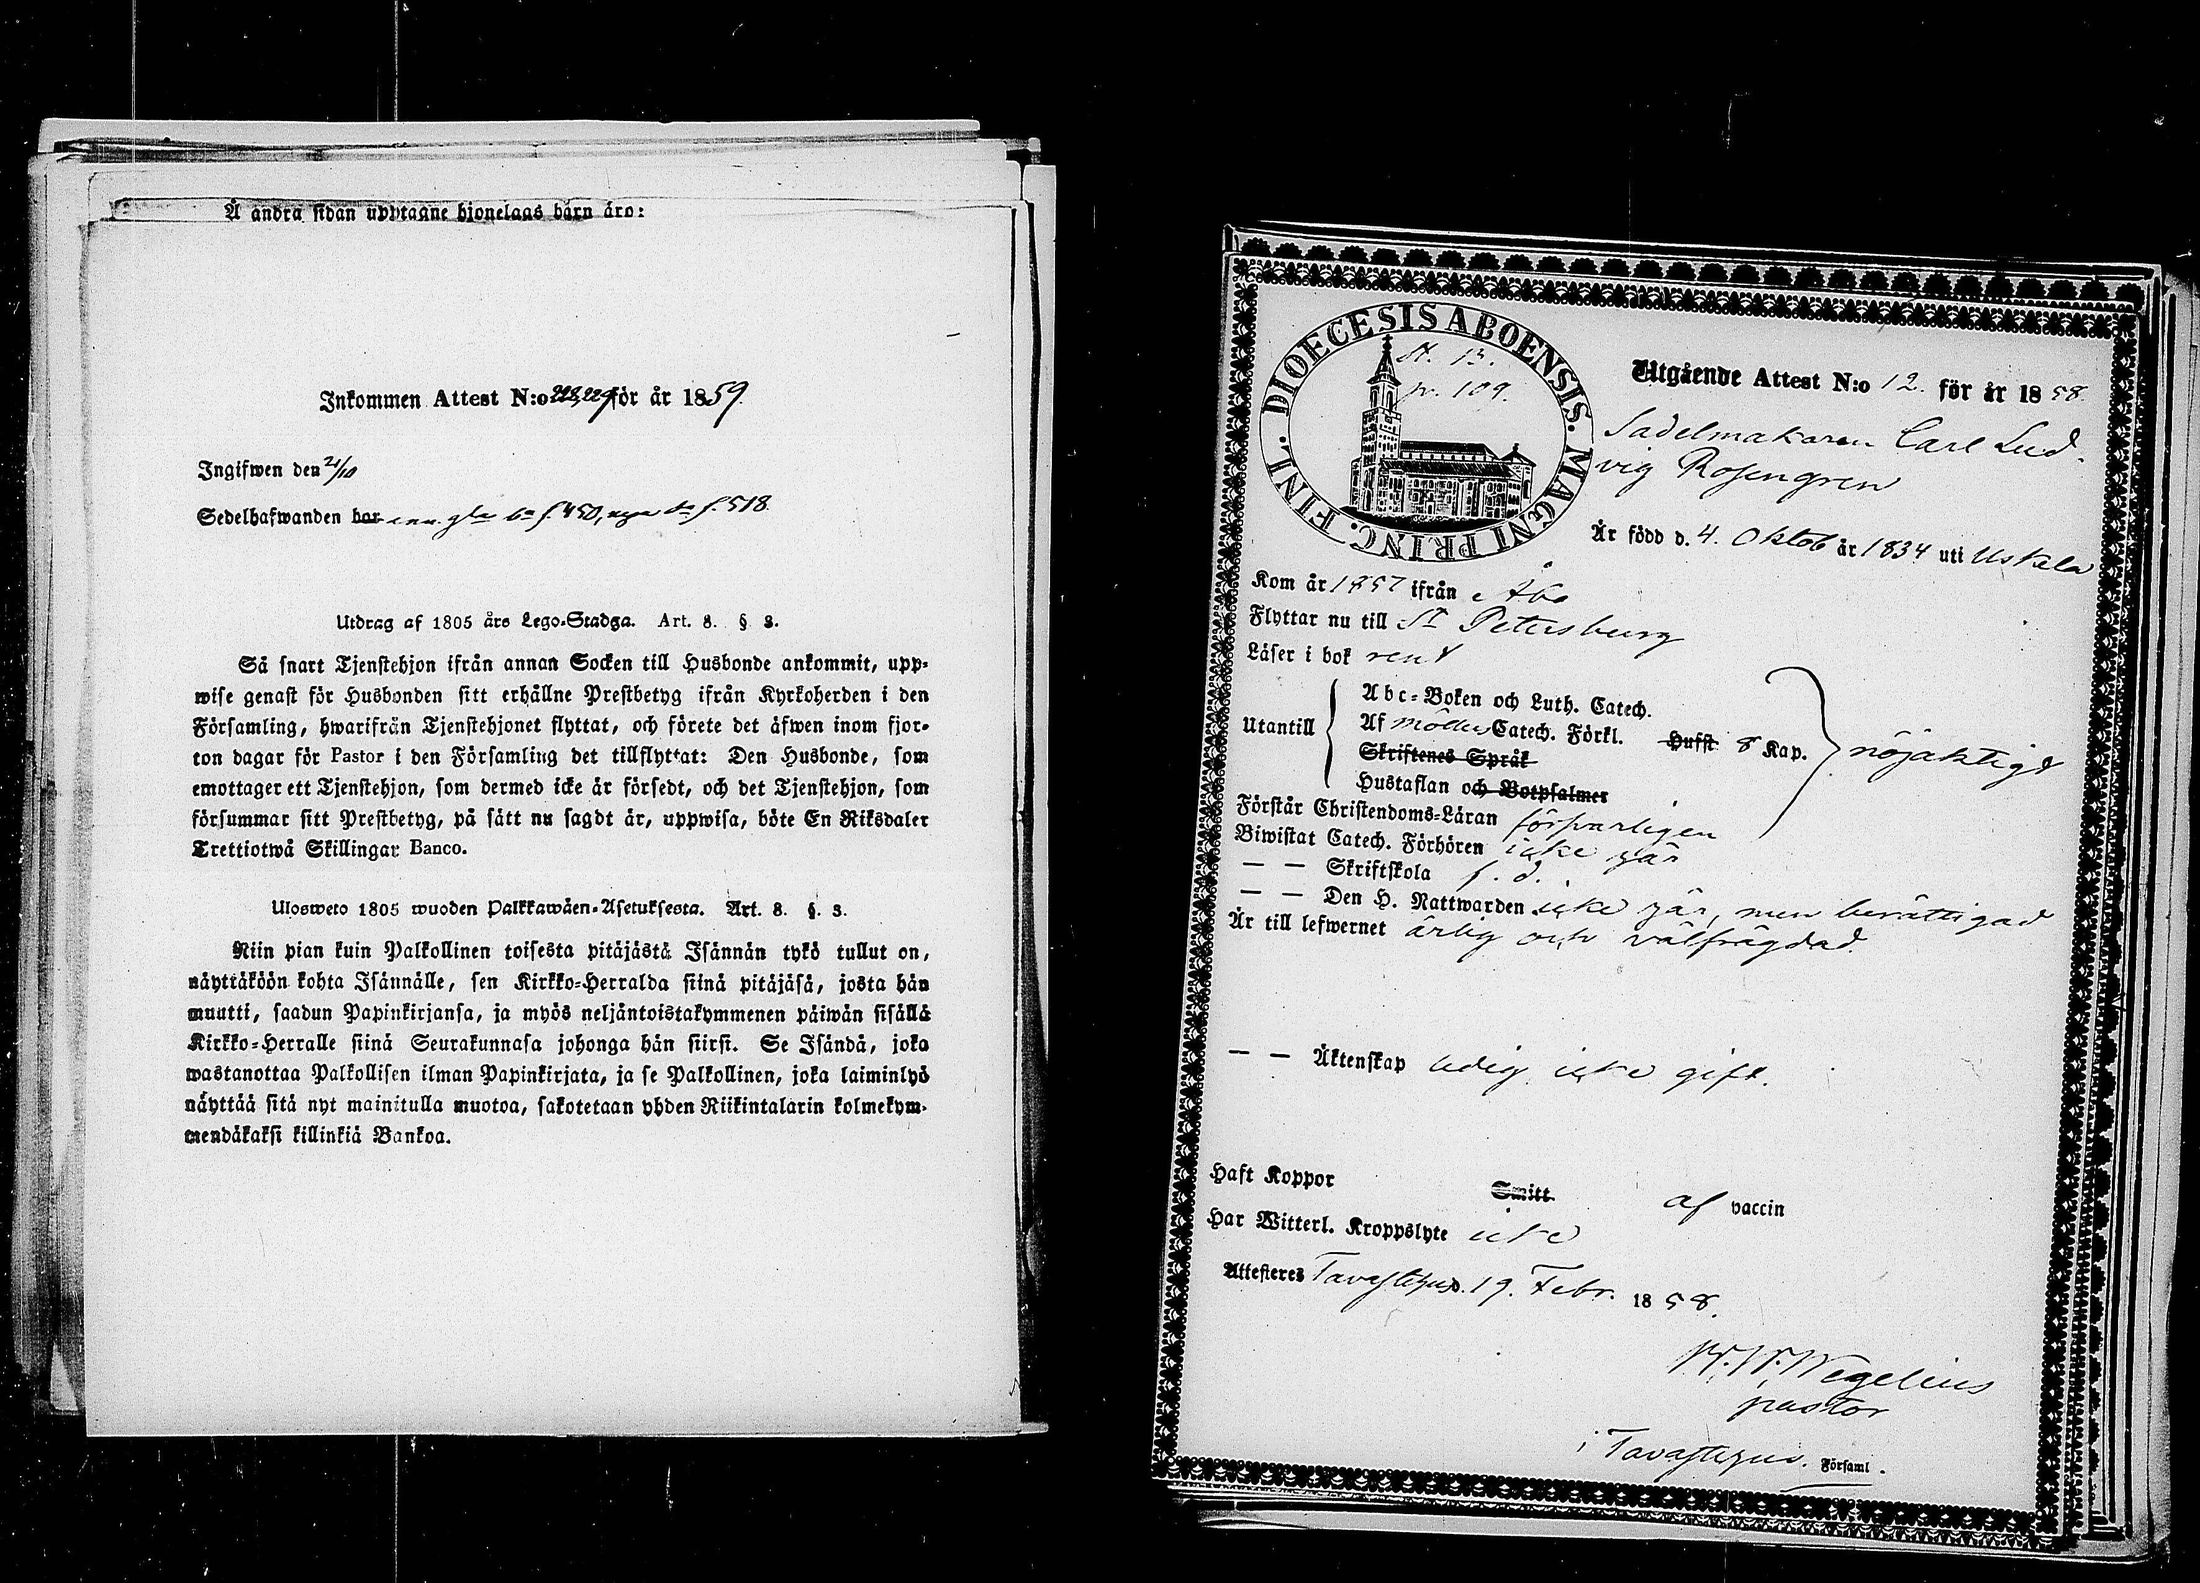 Å andra sidan upptagne hjonelags barn äro:
Inkommen Attest N:o 228,229 för år 1859.
Ingifwen den 21/10
Sedelhafwanden har f. 450, f. 518.
Utdrag af 1805 års Lego-Stadga. Art. 8. § 3.
Så snart Tjenstehjon ifrån annan Socken till Husbonde ankommit, upp-
wise genast för Husbonden sitt erhållne Prestbetyg ifrån Kyrkoherden i den
Församling, hwarifrån Tjenstehjonet flyttat, och förete det äfwen inom fjor-
ton dagar för Pastor i den Församling det tillflyttat: Den Husbonde, som
emottager ett Tjenstehjon, som dermed icke är försedt, och det Tjenstehjon, som
försummar sitt Prestbetyg, på sätt nu sagdt är, uppwisa, böte En Riksdaler
Trettiotwå Skillingar Banco.
Ulosweto 1805 wuoden Palkkawäen-Asetuksesta. Art. 8. §. 3.
Niin pian kuin Palkollinen toisesta pitäjästä Isännän tykö tullut on,
näyttäköön kohta Isännälle, sen Kirkko-Herralda siinä pitäjäsä, josta hän
muutti, saadun Papinkirjansa, ja myös neljäntoistakymmenen päiwän sisällä
Kirkko-Herralle siinä Seurakunnasa johonga hän siirsi. Se Isändä, joka
wastanottaa Palkollisen ilman Papinkirjata, ja se Palkollinen, joka laiminlyö
näyttää sitä nyt mainitulla muotoa, sakotetaan yhden Riikintalarin kolmekym-
mendäkaksi killinkiä Bankoa.
DIOECESIS ABOENSIS. MAGNI PRINC. FINL.
St. 13.
p. 109.
Utgående Attest N:o 12. för år 1858
Sadelmakaren Carl Lud-
vig Rosengren
Är född d. 4. Oktob år 1834 uti Uskela
Kom år 1857 ifrån Åbo
Flyttar nu till St Petersburg
Läser i bok rent
Utantill
Abc-Boken och Luth. Catech.
Af Möllers Catech. Förkl. Hufst 8 Kap. nöjaktigt
Skriftenes Språk
Hustaflan och Botpsalmer
Förstår Christendoms-Läran försvarligen
Biwistat Catech. Förhören icke här
— — Skriftskola s. d.
— — Den H. Nattwarden icke här, men berättigad
Är till lefwernet ärlig och välfrägdad.
— — Äktenskap ledig icke gift.
Haft Koppor Smitt af vaccin
Har Witterl. Kroppslyte icke
Attesteres Tavastehus d. 19. Febr. 1858.
W. Wegelius
pastor
i Tavastehus. Församl.